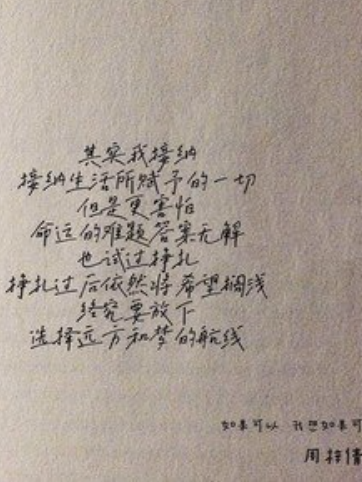 其实我接纳
接纳生活所赋予的一切
但是更害怕
命运的难题答案无解
也试过挣扎
挣扎过后依然将希望搁浅
终究要放下
选择远方和梦的航线
如果可以 我想如果可
周梓倩